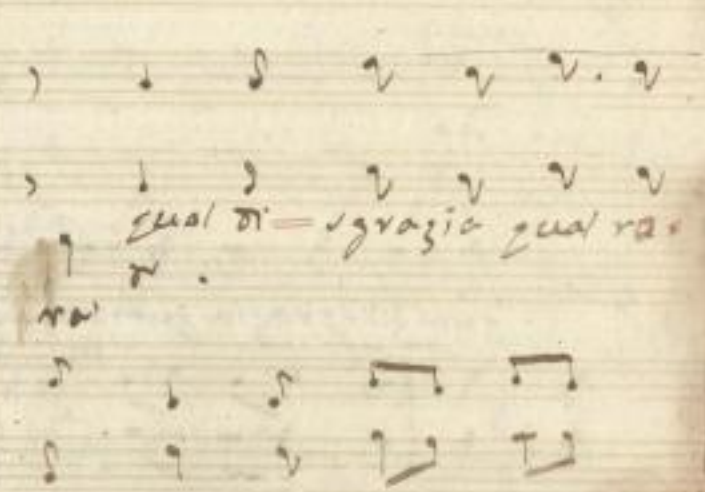 qual di = sgrazia qual ra
ra'